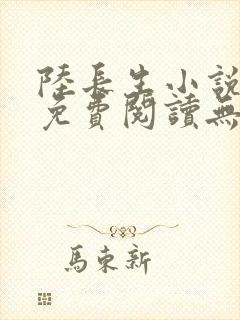 陸長生小說
免費閱讀無
馬東新